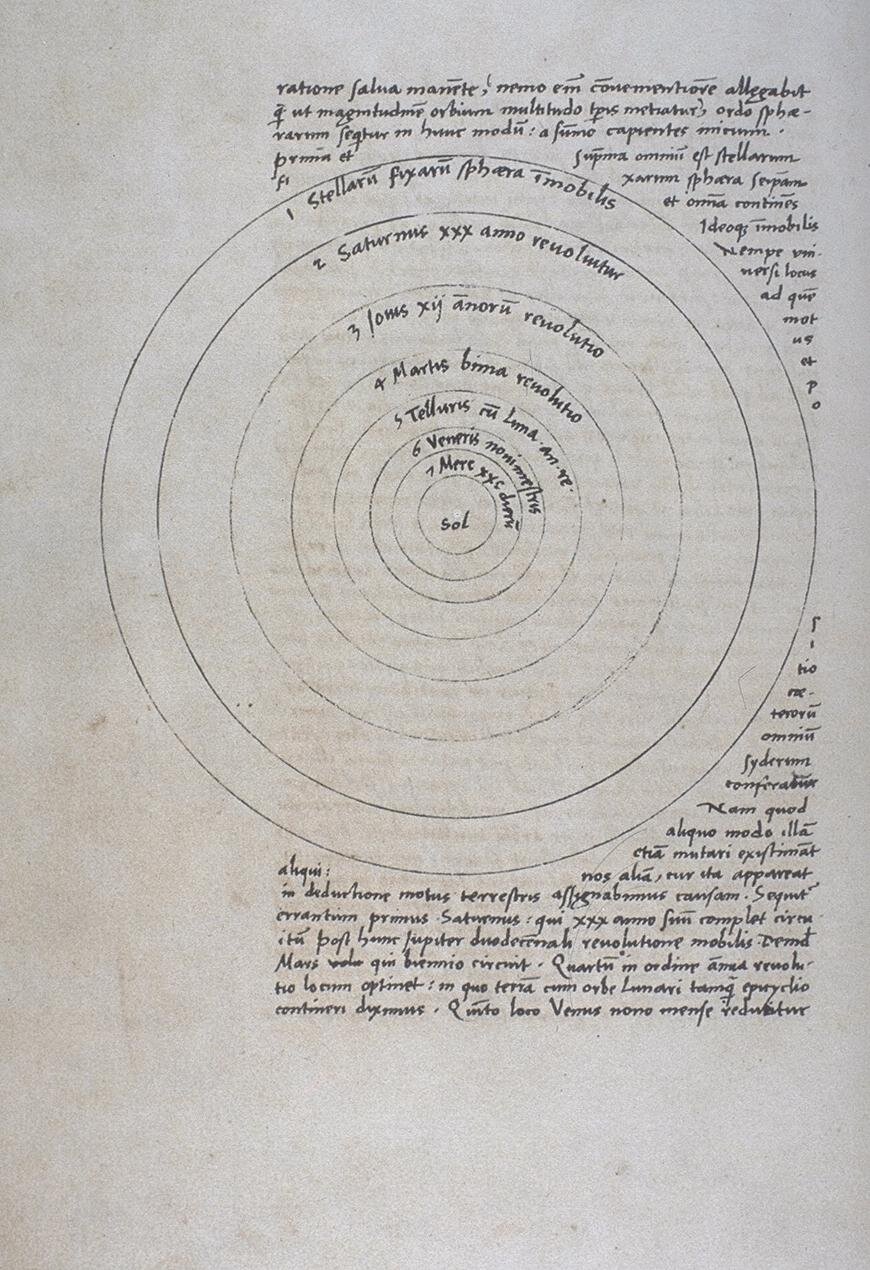 ratione salua manēte, nemo em̄ cōuenientiorē allegabit
q̄ ut magnitudinē orbium multitudo tp̄is metiatur, ordo sphæ-
rarum seqtur in hunc modū: a sūmo capientes inicium.
prima et sup̄ma omniū est stellarum
fi xarum sphæra seip̄am
et omia continēs
Ideoq; īmobilis
Nempe vni-
uersi locus
ad quē
mot
us
et
p
o
1 Stellarū fixarū sphæra īmobilis
2 Saturnus xxx anno reuoluitur
3 Iouis xij ānorū reuolutio
4 Martis bima reuolutio
5 Telluris cū Luna an. re.
6 Veneris nonimestris
7 Merc xxc dierū
Sol
s
i
tio
cæ-
terorū
omniū
syderum
conferatur
Nam quod
aliquo modo illā
etiā mutari existimāt
aliqui: nos aliā, cur ita appareat
in deductione motus terrestris assignabimus causam. Sequit
errantium primus Saturnus: qui xxx anno suū complet circu
itū post hunc Iupiter duodecēnali reuolutione mobilis Demd
Mars qui biennio circuit. Quartū in ordine ānua reuolu-
tio locum optinet: in quo terrā cum orbe Lunari tamq̄ epicyclio
contineri diximus. Quīto loco Venus nono mense reducitur